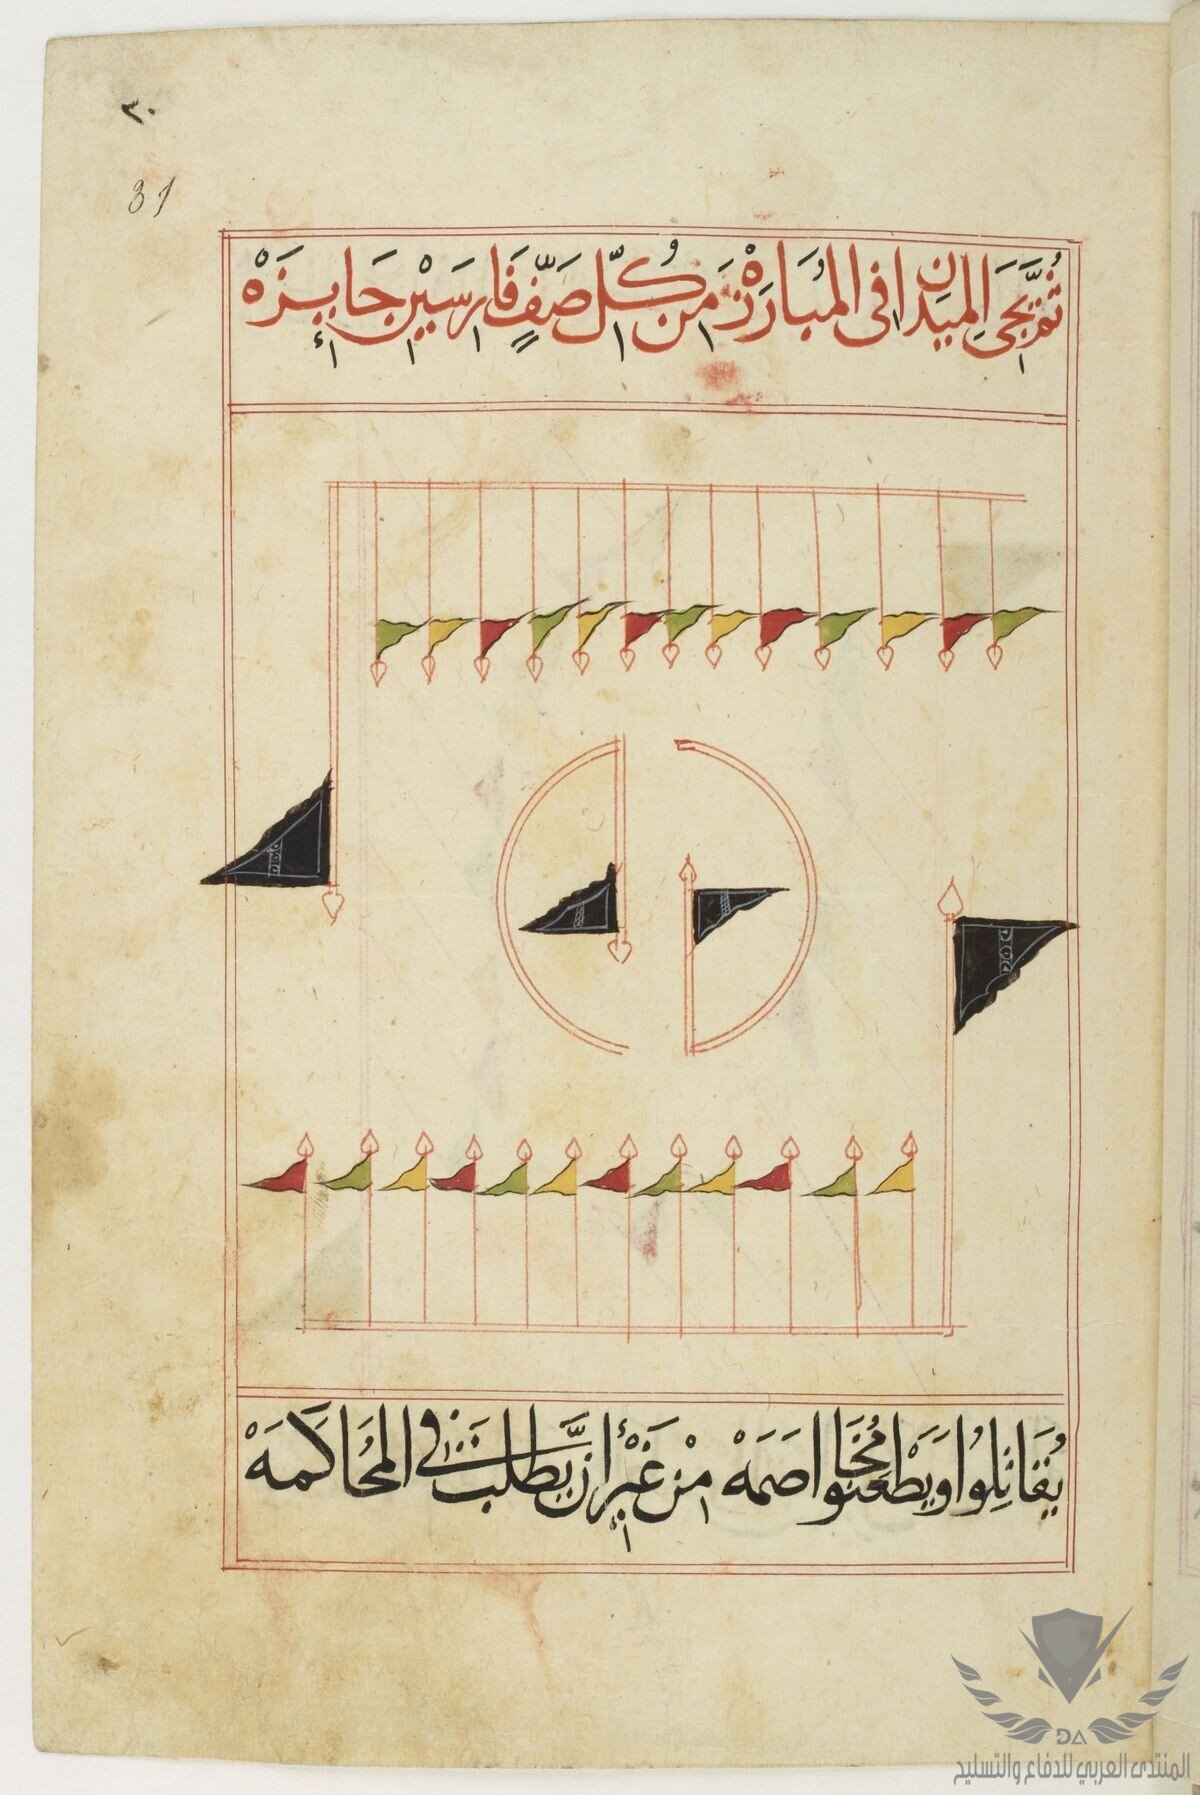 ٣٠
31
ثُمَّ يَجِي المَيدَان فى المُبَارَزَهْ مِنْ كُلّ صَفٍّ فَارسَيْن جَايزَهْ
يُقَاتِلُوا وَيَطْعَنُوا مُخَاصَمَهْ مِنْ غَيْرِ ان يَطَّلِبَنْ فى المُحَاكَمَهْ
DA
المنتدى العربي للدفاع والتسليح